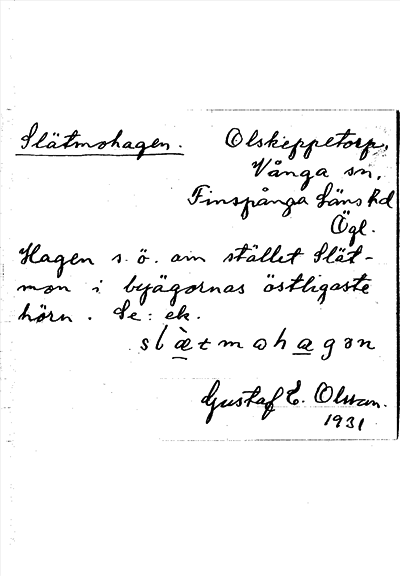 Slätmohagen.
Olskeppetorp,
Vånga sn,
Finspånga läns hd
Ögl.
Hagen s. ö. om stället Slät-
mon i byägornas östligaste
hörn. Se: ek.
slὰtmohagən
Gustaf E. Olsson.
1931